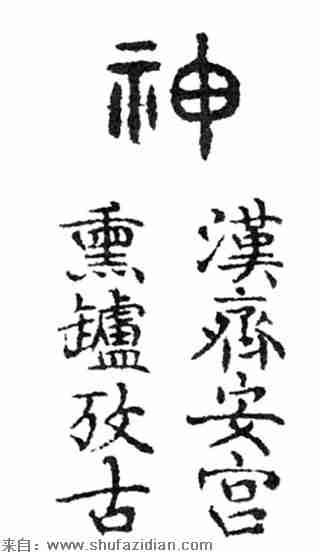 神
漢齊安宫
熏罏攷古
来自：www.shufazidian.com